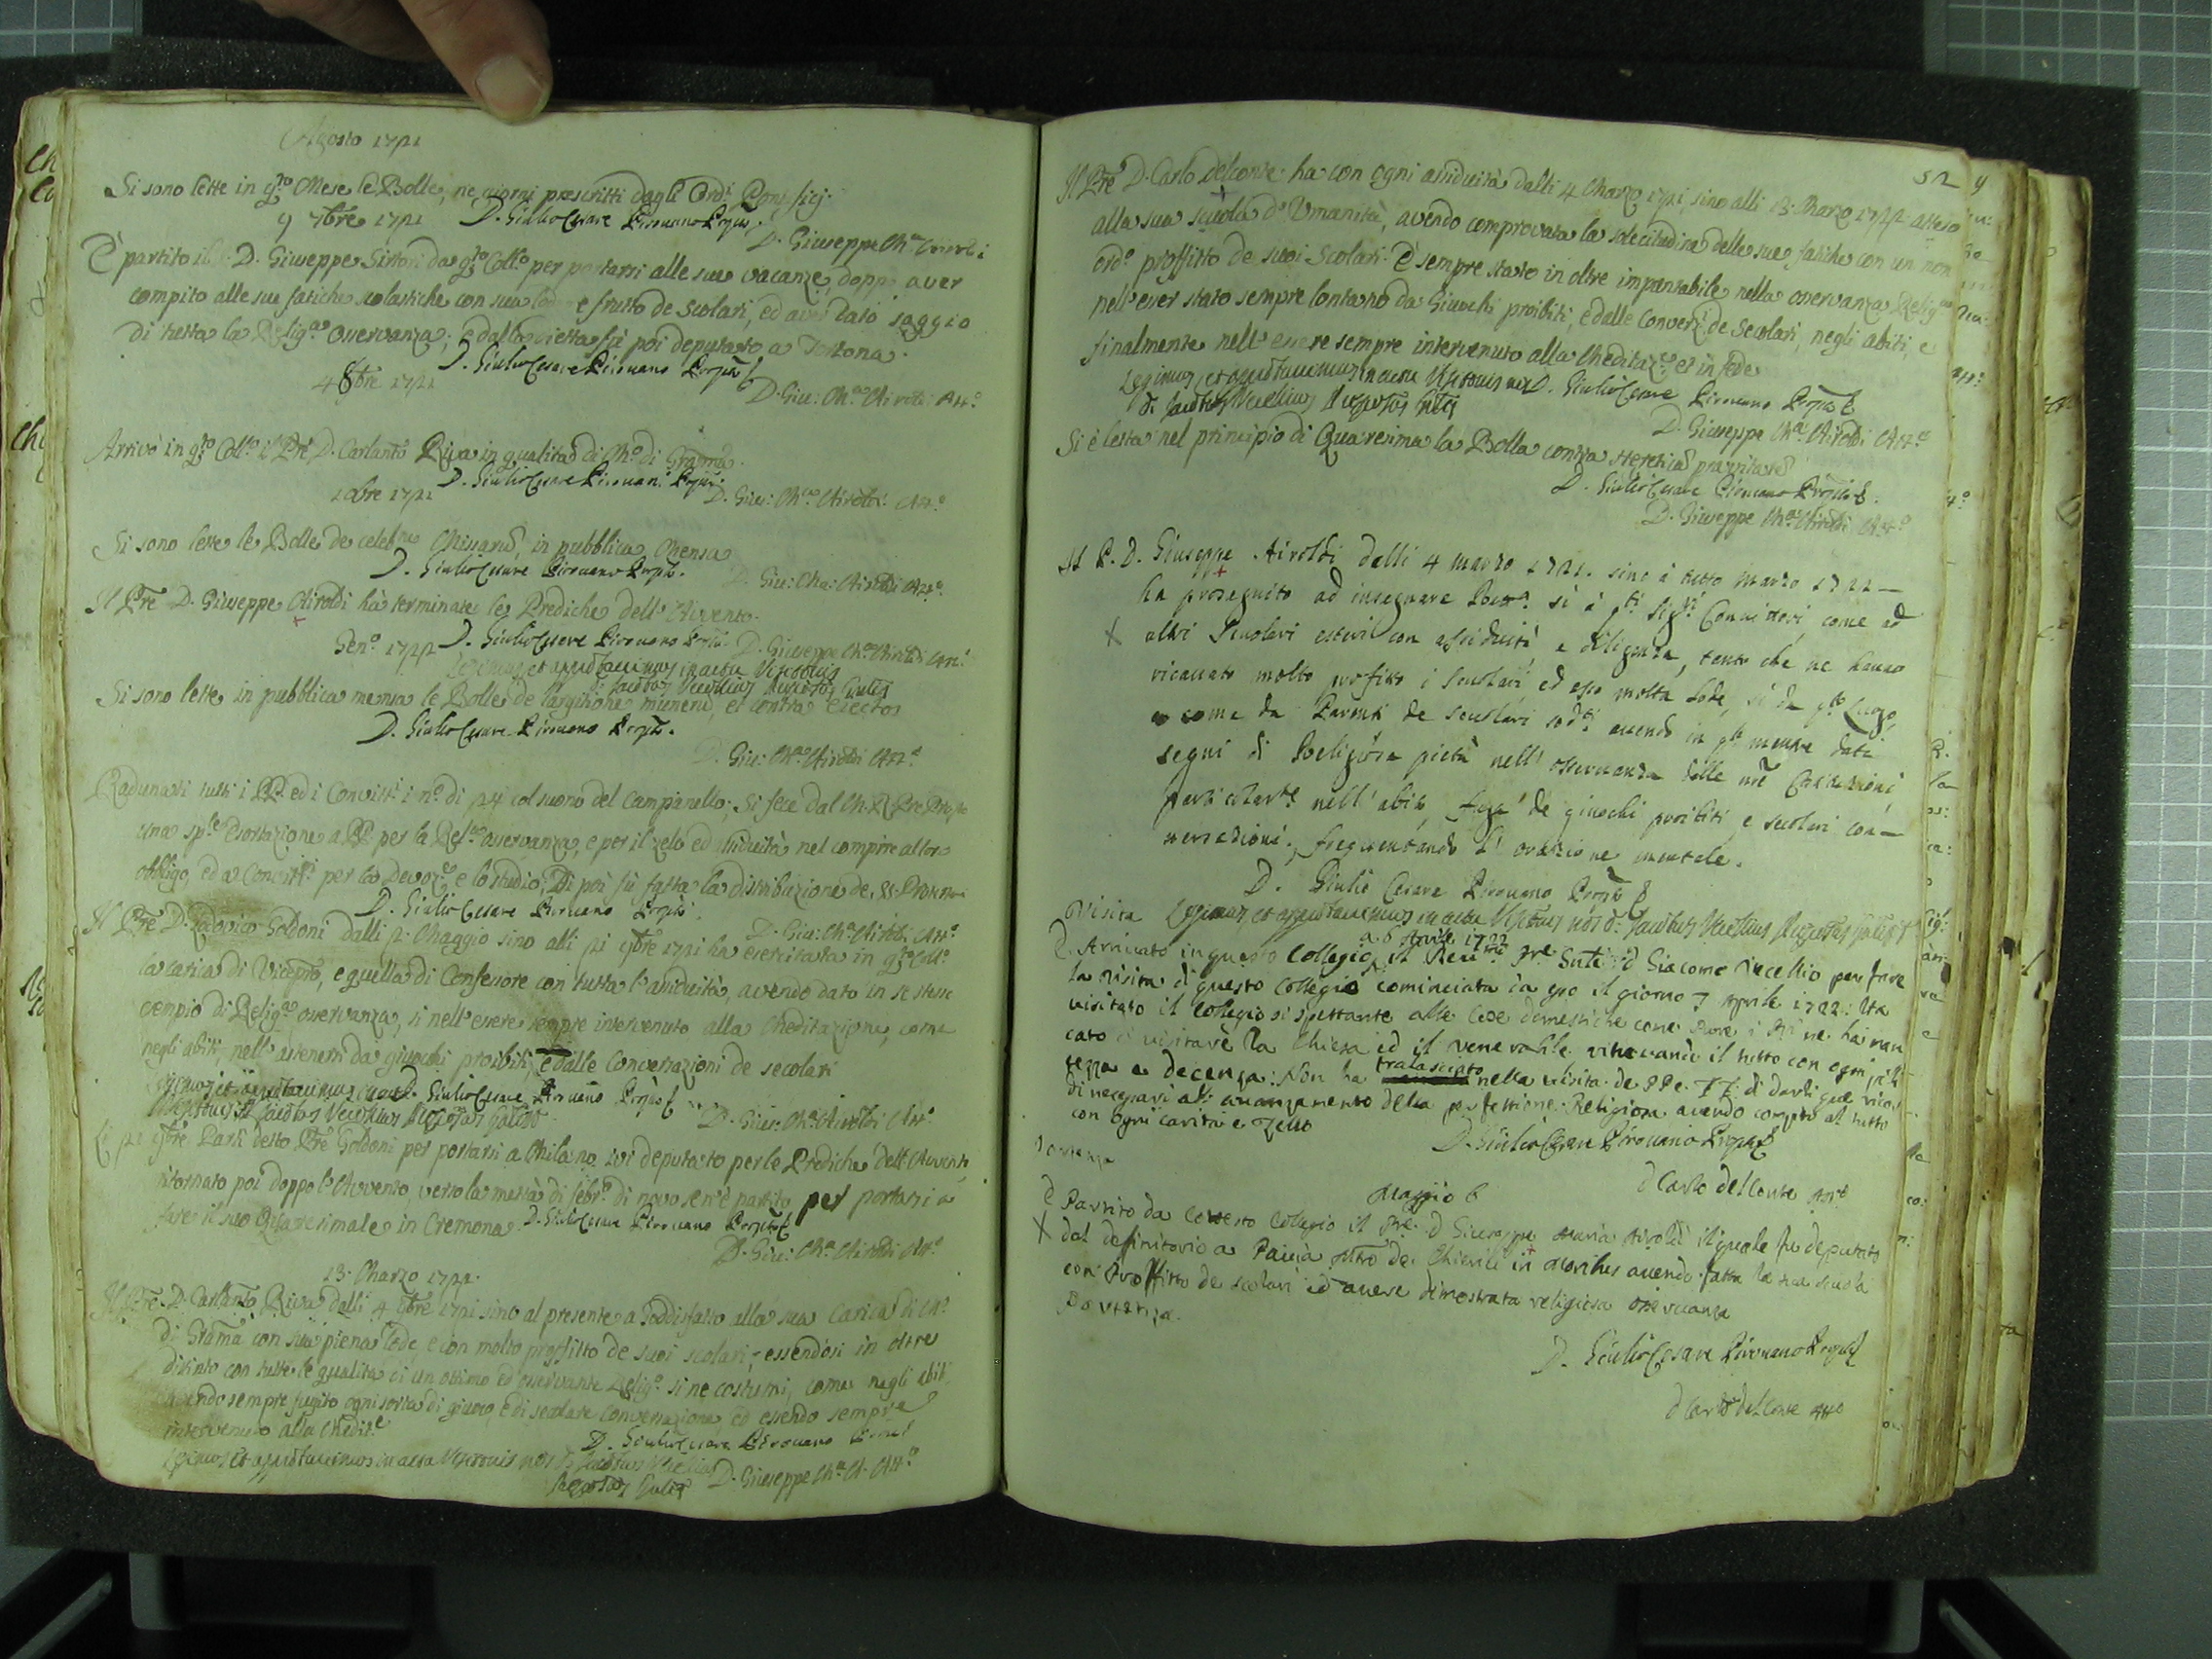 Agosto 1721
Si sono lette in q.to Mese le Bolle, ne giorni prescritti dagli Ord.i Pontificij.
9 7bre 1721 D. Giulio Cesare Pirovano Prop.to
D. Giuseppe M.a Airoldi
È partito il D. Giuseppe Sittoni da q.to Coll.o per portarsi alle sue vacanze, doppo aver
compito alle sue fatiche scolastiche con sua lode e frutto de Scolari, ed aver dato saggio
di tutta la Relig.a osservanza; e dalla Dietta fù poi deputato a Tortona.
D. Giulio Cesare Pirovano Prop.to
4 8bre 1721
D. Giu: M.a Airoldi Att.o
Arrivò in q.to Coll.o il Pre D. Carlant.o Riva in qualità di M.o di Gramma.
D. Giulio Cesare Pirovani Prop.to
xbre 1721 D. Giu: M.a Airoldi Att.o
Si sono lette le Bolle de celeb.ne Missarum, in pubblica Mensa
D. Giulio Cesare Pirovano Prop.to
D. Giu: Ma: Airoldi Att.o
Il Pre D. Giuseppe Airoldi hà terminate le Prediche dell'Avvento.
Gen.o 1722 D. Giulio Cesare Pirovano Prop.to D. Giuseppe M.a Airoldi Att.o
Legimus, et approbavimus in actu Visitationis
D. Jacobus Vecellius Prepositus Gnlis
Si sono lette in pubblica mensa le Bolle de largitione munerum, et contra eiectos
D. Giulio Cesare Pirovano Prop.to
D. Giu: M.a Airoldi Att.o
Radunati tutti i PP. ed i Convitt.i in n.o di 24 col suono del Campanello; Si fece dal M. R. Pre Prep.to
una sp.le Esortazione a PP. per la Rel.a osservanza, e per il zelo ed assiduità nel compire al loro
obbligo, ed a Convitt.i per la Devoz.e e lo studio, Di poi fù fatta la distribuzione de SS. Protettori
D. Giulio Cesare Pirovano Prop.to
D. Giu: M.a Airoldi Att.o
Il Pre D. Lodovico Goldoni dalli 2 Maggio sino alli 21 9bre 1721 ha esercitata in q.to Coll.o
la carica di Vicepro, e quella di Confessore con tutta l'assiduità, avendo dato in se stesso
esempio di Relig.a osservanza, si nell'essere sempre intervenuto alla Meditazione, come
negli abiti, nell'astenersi da giuochi proibiti, e dalle Conversazioni de secolari
Legimus, et approbavimus in actu D. Giulio Cesare Pirovano Prop.to
Visitationis D. Jacobus Vecellius Prepositus Gnlis D. Giu: M.a Airoldi Att.o
Li 21 9bre Partì detto Pre Goldoni per portarsi a Milano ivi deputato per le Prediche dell'Avvento,
ritornato poi doppo l'Avvento, verso la metà di febr.o di novo sen'è partito per portarsi a
fare il suo Quaresimale in Cremona. D. Giulio Cesare Pirovano Prop.to
D. Giu: M.a Airoldi Att.o
13 Marzo 1722.
Il Pre D. Carlanto Riva dalli 4 8bre 1721 sino al presente a Soddisfatto alla sua Carica di M.o
di Grama con sua piena lode, e con molto proffitto de suoi scolari; essendosi in oltre
distinto con tutte le qualità di un ottimo ed osservante Relig.o si ne costumi, come negli abiti,
avendo sempre fugito ogni sorta di giuoco e di secolare Conversazione, ed essendo sempre
intervenuto alla Medit.e
D. Giulio Cesare Pirovano Prop.to
Legimus et approbavimus in actu Visitationis nos D. Jacobus Vecellius D. Giuseppe M.a A. Att.o
Prepositus Gnlis
52
Il Pre D. Carlo Delconte ha con ogni assiduità dalli 4 Marzo 1721, sino alli 13 Marzo 1722 atteso
alla sua scuola d'Umanità, avendo comprovata la solecitudine delle sue fatiche con un non
ord.o proffitto de suoi Scolari. È sempre stato in oltre impuntabile nella osservanza Relig.a
nell'esser stato sempre lontano da Giuochi proibiti, e dalle Convers.i de Secolari, negli abiti, e
finalmente nell'essere sempre intervenuto alla Meditaz.e et in fede
Legimus, et approbavimus in actu Visitationis nos D. Giulio Cesare Pirovano Prop.to
D. Jacobus Vecellius Prepositus Gnlis
D. Giuseppe M.a Airoldi Att.o
Si è letta nel principio di Quaresima la Bolla contra hereticam pravitatem
D. Giulio Cesare Pirovano Prop.to
D. Giuseppe M.a Airoldi Att.o
Il P. D. Giuseppe Airoldi dalli 4 marzo 1721. sino à tutto marzo 1722
ha proseguito ad insegnare Rett.a sì à q.ti Sig.ri Convittori, come ad
X altri Scuolari esteri con assiduità e diligenza, tanto che ne hanno
ricavato molto profitto i Scuolari ed esso molta lode, sì da q.to Luogo,
come da Parenti de scuolari sod.ti avendo in q.to mentre dati
segni di Religiosa pietà nell'osservanza delle nre Costituzioni
particolarte nell'abito, fuga de giuochi proibiti e secolari con-
versazioni, frequentando l'orazione mentale.
D. Giulio Cesare Pirovano Prop.to
Visita Legimus, et approbavimus in actu Visitationis nos D. Jacobus Vecellius Prepositus Gnlis
a 6 Aprile 1722
È Arrivato in questo Collegio il Reu.mo Pre D Giacomo Vecellio per fare
la visita di questo Collegio cominciata da esso il giorno 7 Aprile 1722: Ha
visitato il Collegio si spettante alle Cose domestiche come pure ne ha man
cato di visitare la Chiesa ed il venerabile ritrovando il tutto con ogni poli
tezza e decenza: Non ha tralasciato nella visita de PP. e FF. di darli que ricor
di necessari all'avanzamento della perfettione Religiosa avendo compito al tutto
con ogni carità e zello
D. Giulio Cesare Pirovano Prop.to
Partenza
D Carlo del Conte Atto
Maggio 6
È Partito da Cotesto Collegio il Pre D Giuseppe Maria Airoldi il quale fu deputato
X dal definitorio a Pavia Mtro de Chierici in Moribus avendo fatta la sua scuola
con Proffitto de scolari ed avere dimostrata religiosa osservanza
Partenza.
D. Giulio Cesare Pirovano Prop.to
D Carlo del Conte Atto